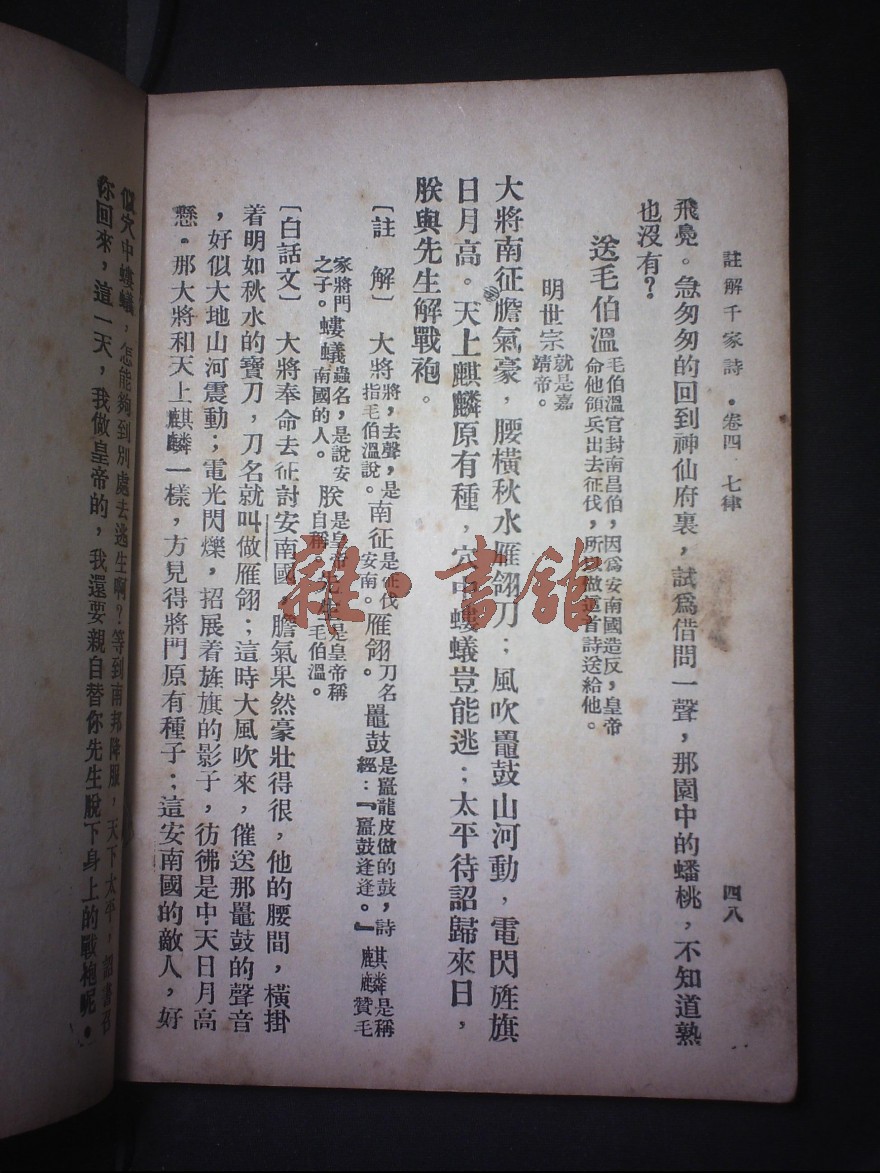 註解千家詩・卷四 七律 四八
飛觥。急匆匆的回到神仙府裏，試爲借問一聲，那園中的蟠桃，不知道熟
也沒有？
送毛伯溫 毛伯溫官封南昌伯，因爲安南國造反，皇帝
命他領兵出去征伐，所以做這首詩送給他。
明世宗 就是嘉
靖帝。
大將南征膽氣豪，腰橫秋水雁翎刀；風吹鼉鼓山河動，電閃旌旗
日月高。天上麒麟原有種，穴中螻蟻豈能逃；太平待詔歸來日，
朕與先生解戰袍。
〔註 解〕 大將 將，去聲，是
指毛伯溫說。 南征 是征伐
安南。 雁翎 刀名 鼉鼓 是鼉龍皮做的鼓，詩
經：『鼉鼓逢逢。』 麒麟 是稱
贊毛
家將門
之子。 螻蟻 蟲名，是說安
南國的人。 朕 是皇帝
自稱。 先生 是皇帝稱
毛伯溫。
〔白話文〕 大將奉命去征討安南國，膽氣果然豪壯得很，他的腰間，橫掛
着明如秋水的寶刀，刀名就叫做雁翎；這時大風吹來，催送那鼉鼓的聲音
，好似大地山河震動；電光閃爍，招展着旌旗的影子，彷彿是中天日月高
懸。那大將和天上麒麟一樣，方見得將門原有種子；這安南國的敵人，好
似穴中螻蟻，怎能夠到別處去逃生啊？等到南邦降服，天下太平，詔書召
你回來，這一天，我做皇帝的，我還要親自替你先生脫下身上的戰袍呢。
雜・書館